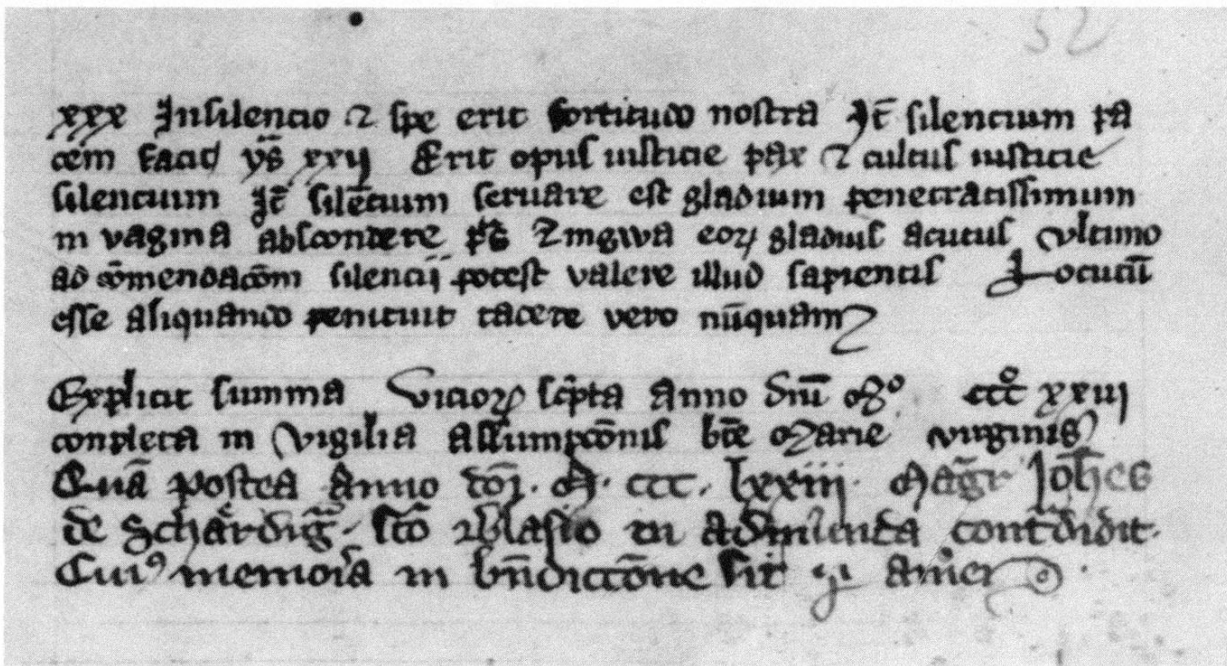 52
xxx Insilencio ⁊ spe erit fortitudo nostra Jt̄ silencium pa
cem facit ys̄ xxij Erit opus iusticie pax ⁊ cultus iusticie
silencium Jt̄ silēcium seruare est gladium penetratissimum
in vagina abscondere ps̄ Lingwa eoꝝ gladius acutus Vltimo
ad cōmendacōm silencij potest valere illud sapientis Locutū
esse aliquando penituit tacere vero nūquam
Explicit summa Vicioꝝ sc̄pta anno dnī mº cccº xxiij
conpleta in Vigilia assumpcōnis bt̄e marie virginis
Quā postea Anno dōj · M · ccc · lxxiii · Magr̄ Joh̄es
de Schärdinḡ · sc̄o Blasio in Admunda cont̄didit ·
Cuiꝰ memoīa in bn̄diccōne sit amen